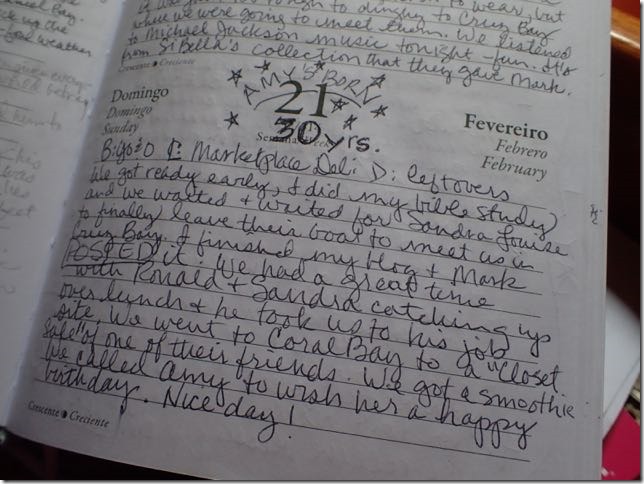 to wear, but
to dinghy to Cruz Bay
where we were going to meet them. We listened
to Michael Jackson music tonight - fun. It's
from SiBella's collection that they gave Mark.
Crescente Creciente
AMY'S BORN
Domingo
Domingo
Sunday
21
Fevereiro
Febrero
February
30 yrs.
B: yo²O L: Marketplace Deli D: leftovers
We got ready early, I did my bible study
and we waited & waited for Sandra Louise
to finally leave their boat to meet us in
Cruz Bay. I finished my blog & Mark
POSTED it. We had a great time
with Ronald & Sandra catching up
over lunch & he took us to his job
site. We went to Coral Bay to a "closet
sale" of one of their friends. We got a smoothie
We called Amy to wish her a happy
birthday. Nice day!
Crescente Creciente